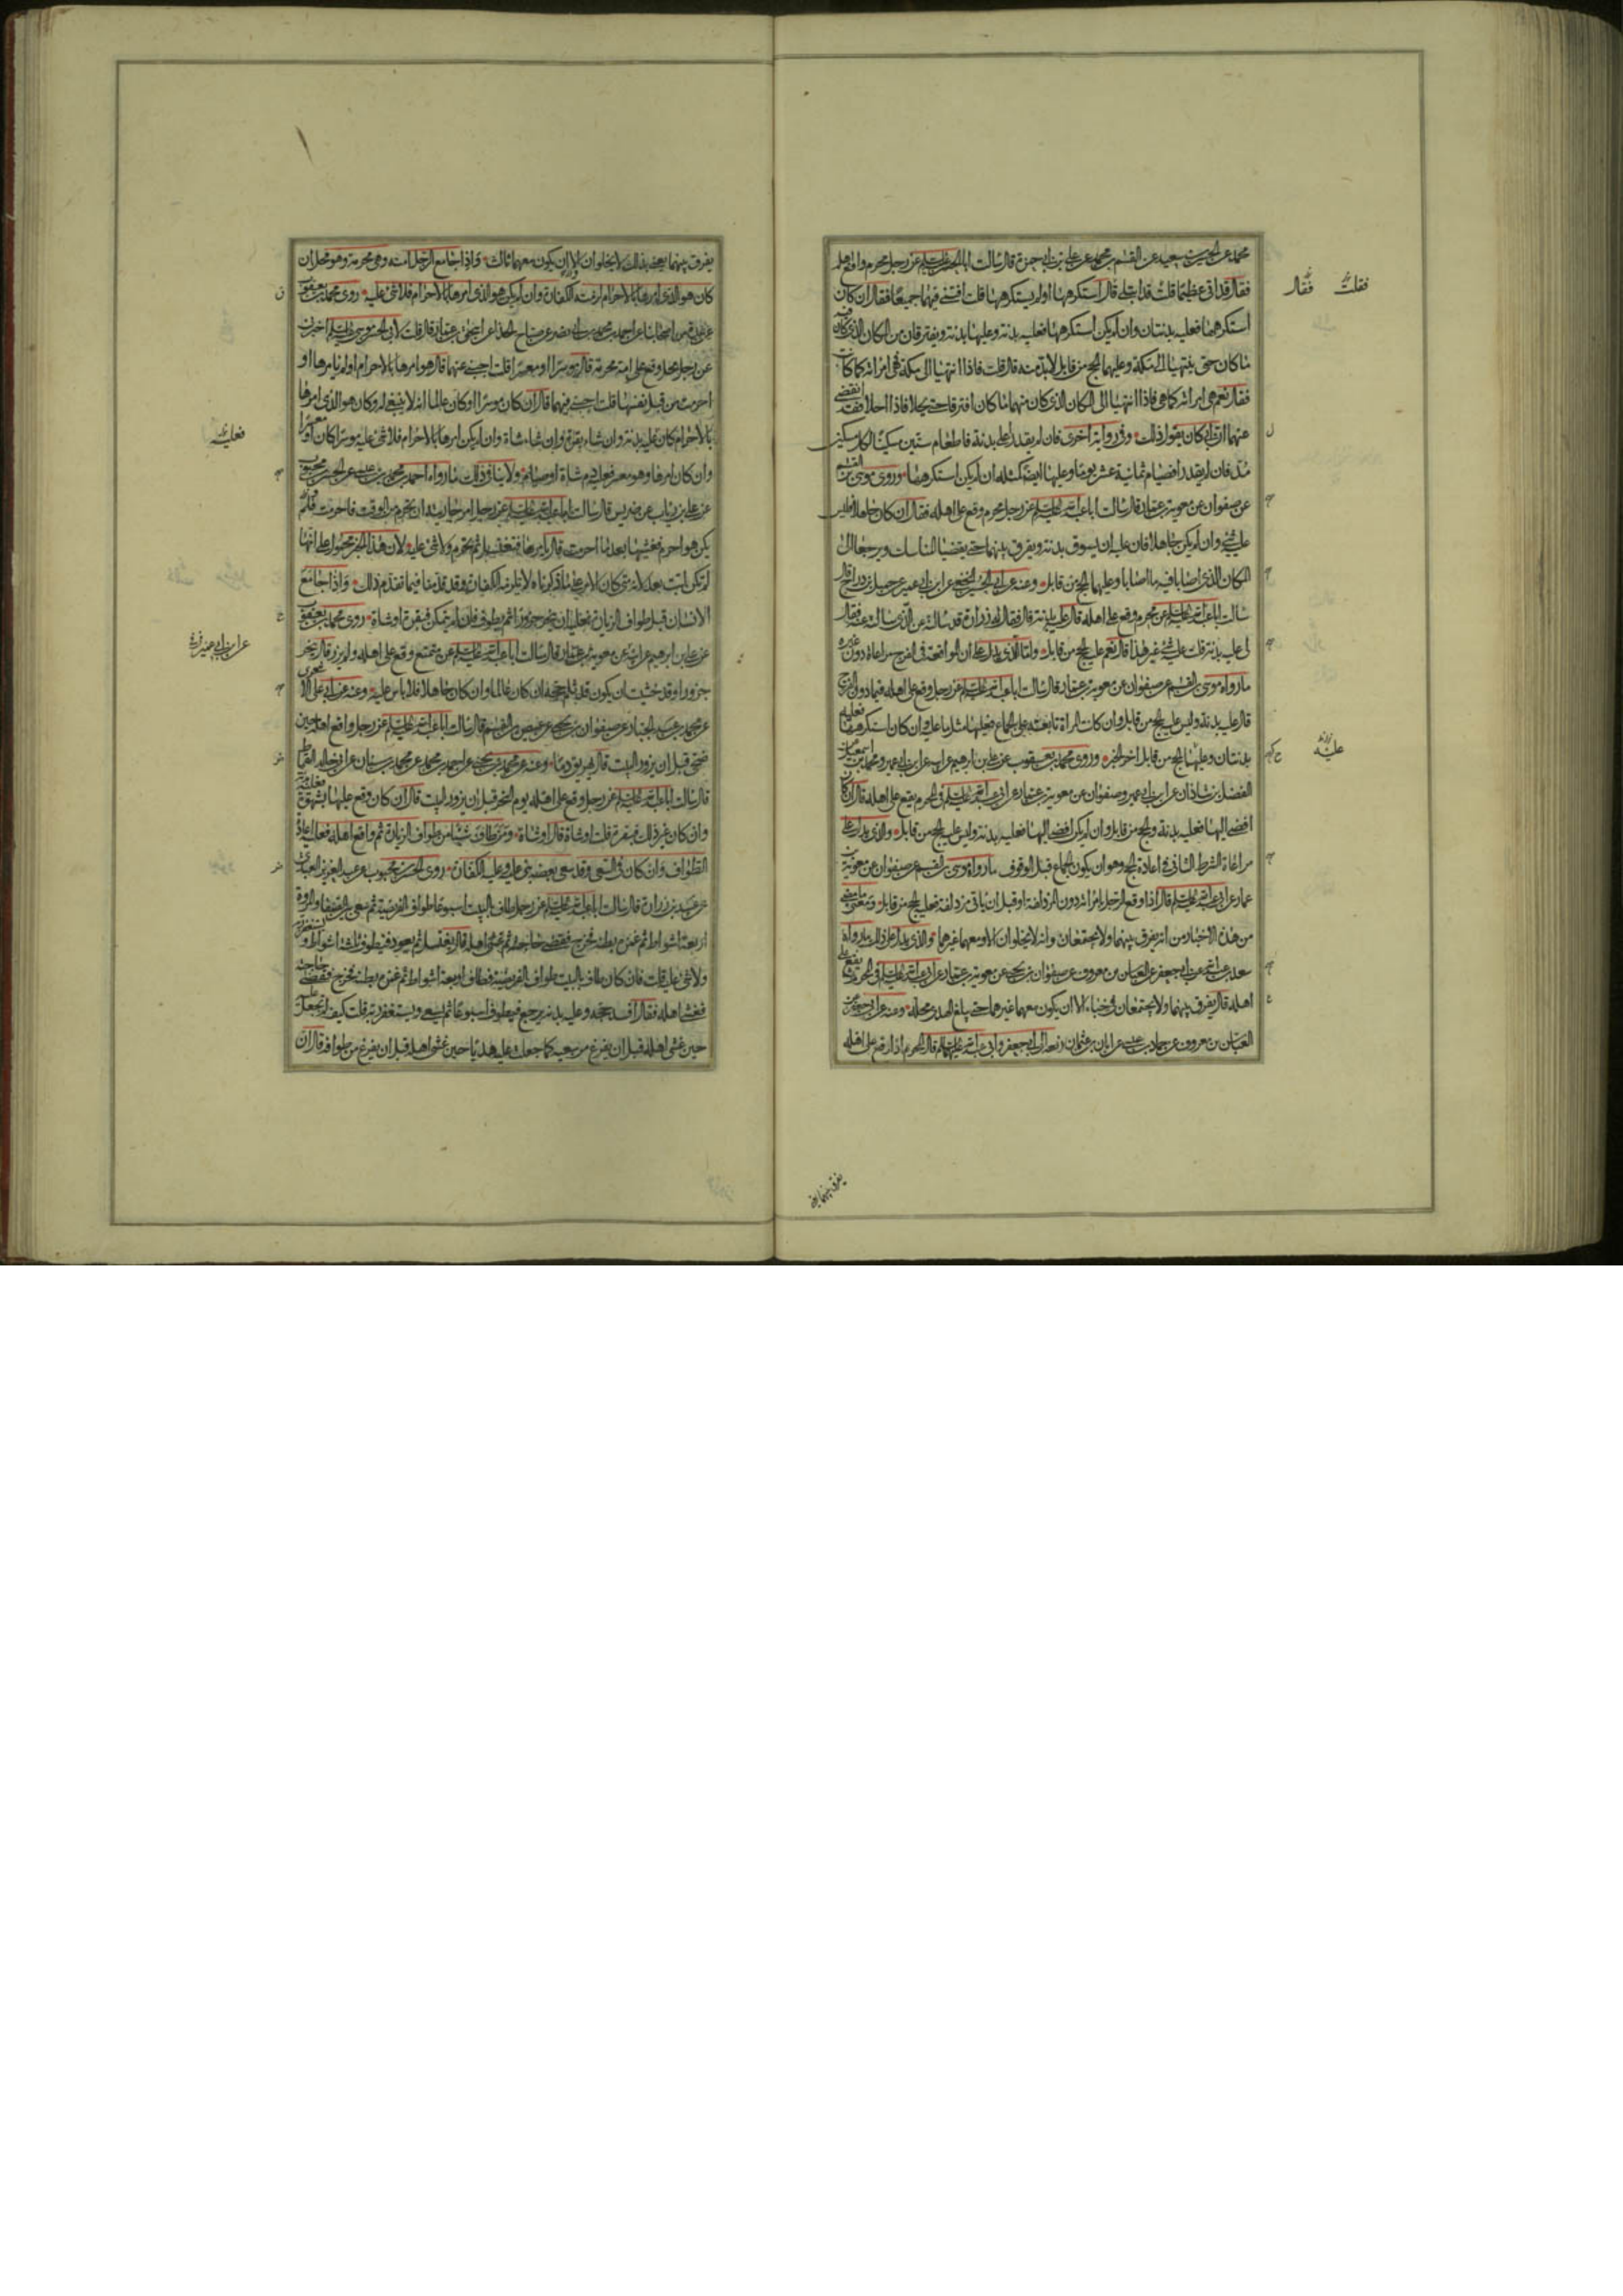 محمد عن الحسين بن سعيد عن القسم بن محمد عن علي بن ابي حمزة قال سالت ابا الحسن عليه السلم عن رجل محرم واقع اهله
فقال قد اتى عظيما قلت قد ابتلى قال استكرهها او لم يستكرهها قلت افتنى فيهما جميعا فقال ان كان
استكرهها فعليه بدنتان وان لم يكن استكرهها فعليه بدنة وعليها بدنة ويفترقان من المكان الذي كان فيه
ما كان حتى ينتهيا الى مكة وعليهما الحج من قابل لا بد منه قال قلت فاذا انتهيا الى مكة فهى امراته كما كانت
فقال نعم هى امراته كما هى فاذا انتهيا الى المكان الذي كان منهما ما كان افترقا حتى يحلا فاذا احلا فقد انقضى
عنهما ان ابى كان يقول ذلك وفى رواية اخرى فان لم يقدر على بدنة فاطعام ستين مسكينا لكل مسكين
مد فان لم يقدر فصيام ثمانية عشر يوما وعليها ايضا كمثله ان لم يكن استكرهها وروى موسى بن القسم
عن صفوان عن معوية بن عمار قال سالت ابا عبد الله عليه السلم عن رجل محرم وقع على اهله فقال ان كان جاهلا فليس
عليه شئ وان لم يكن جاهلا فان عليه ان يسوق بدنة ويفرق بينهما حتى يقضيا المناسك ويرجعا الى
المكان الذي اصابا فيه ما اصابا وعليهما الحج من قابل وعنه عن ابى الحسين النخعى عن ابن ابى عمير عن جميل بن دراج قال
سالت ابا عبد الله عليه السلم عن محرم وقع على اهله قال عليه بدنة قال فقال له زرارة قد سالته عن الذي سالته عنه فقال
لى عليه بدنة قلت عليه شئ غير هذا قال نعم عليه الحج من قابل واما الذي يدل على ان المواقعة فى الفرج مراعاة دون غيره
ما رواه موسى بن القسم عن صفوان عن معوية بن عمار قال سالت ابا عبد الله عليه السلم عن رجل وقع على اهله فيما دون الفرج
قال عليه بدنة وليس عليه الحج من قابل وان كانت المراة تابعته على الجماع فعليها مثل ما عليه وان كان استكرهها فعليه
بدنتان وعليهما الحج من قابل اخر الخبر وروى محمد بن يعقوب عن علي بن ابرهيم عن ابيه عن ابن ابى عمير ومحمد بن اسمعيل عن
الفضل بن شاذان عن ابن ابى عمير وصفوان عن معوية بن عمار عن ابى عبد الله عليه السلم فى المحرم يقع على اهله قال ان كان
افضى اليها فعليه بدنة والحج من قابل وان لم يكن افضى اليها فعليه بدنة وليس عليه الحج من قابل والذي يدل على
مراعاة الشرط الثانى فى اعادة الحج وهو ان يكون الجماع قبل الوقوف ما رواه موسى بن القسم عن صفوان عن معوية بن
عمار عن ابى عبد الله عليه السلم قال اذا وقع الرجل بامراته دون المزدلفة او قبل ان ياتى مزدلفة فعليه الحج من قابل ومعنى ما مضى
من هذه الاخبار من انه يفرق بينهما ولا يجتمعان وانه لا يخلوان الا ومعهما غيرهما والذي يدل على ذلك ما رواه
سعد بن عبد الله عن ابى جعفر عن العباس بن معروف عن صفوان بن يحيى عن معوية بن عمار عن ابى عبد الله عليه السلم فى المحرم يقع على
اهله قال يفرق بينهما ولا يجتمعان فى خباء الا ان يكون معهما غيرهما حتى يبلغ الهدى محله وعنه عن ابى جعفر عن
العباس بن معروف عن حماد بن عيسى عن ابان بن عثمان رفعه الى ابى جعفر وابى عبد الله عليهما السلم قال المحرم اذا وقع على اهله
فقلت فقال
عليه
يفرق بينهما يعنى
يفرق بينهما يعنى بذلك لا يخلوان الا ان يكون معهما ثالث واذا جامع الرجل امته وهى محرمة وهو محل ان
كان هو الذي امرها بالاحرام لزمته الكفارة وان لم يكن هو الذي امرها بالاحرام فلا شئ عليه روى محمد بن يعقوب
عن عدة من اصحابنا عن احمد بن محمد بن ابى نصر عن صباح الحذاء عن اسحق بن عمار قال قلت لابى الحسن موسى عليه السلم اخبرنى
عن رجل محل وقع على امة محرمة قال موسرا او معسرا قلت اجبنى عنهما قال هو امرها بالاحرام او لم يامرها او
احرمت من قبل نفسها قلت اجبنى فيهما قال ان كان موسرا وكان عالما انه لا ينبغى له وكان هو الذي امرها
بالاحرام كان عليه بدنة وان شاء بقرة وان شاء شاة وان لم يكن امرها بالاحرام فلا شئ عليه موسرا كان او معسرا
وان كان امرها وهو معسر فعليه دم شاة او صيام ولا ينافى ذلك ما رواه احمد بن محمد بن عيسى عن الحسن بن محبوب
عن علي بن رياب عن ضريس قال سالت ابا عبد الله عليه السلم عن رجل امر جاريته ان تحرم من الوقت فاحرمت ولم
يكن هو احرم فغشيها بعد ما احرمت قال يامرها فتغتسل ثم تحرم ولا شئ عليه لان هذا الخبر محمول على انها
لم تكن لبت بعد لانه متى كان الامر على ما ذكرناه لا تلزمه الكفارة وقد قدمنا فيما تقدم ذلك واذا جامع
الانسان قبل طواف الزيارة فعليه ان ينحر جزورا ثم يطوف فان لم يتمكن فبقرة او شاة روى محمد بن يعقوب
عن علي بن ابرهيم عن ابيه عن معوية بن عمار قال سالت ابا عبد الله عليه السلم عن متمتع وقع على اهله ولم يزر قال ينحر
جزورا وقد خشيت ان يكون قد ثلم حجه ان كان عالما وان كان جاهلا فلا باس عليه وعنه عن ابى على الاشعرى
عن محمد بن عبد الجبار عن صفوان بن يحيى عن عيص بن القسم قال سالت ابا عبد الله عليه السلم عن رجل واقع اهله حين
ضحى قبل ان يزور البيت قال يهريق دما وعنه عن محمد بن يحيى عن احمد بن محمد عن محمد بن سنان عن ابى خالد القماط
قال سالت ابا عبد الله عليه السلم عن رجل وقع على اهله يوم النحر قبل ان يزور البيت قال ان كان وقع عليها بشهوة فعليه بدنة
وان كان غير ذلك فبقرة قلت او شاة قال او شاة ومن طاف شيئا من طواف الزيارة ثم واقع اهله فعليه اعادة
الطواف وان كان فى السعى وقد سعى بعضه بنى عليه وعليه الكفارة روى الحسن بن محبوب عن عبد العزيز العبدى
عن عبيد بن زرارة قال سالت ابا عبد الله عليه السلم عن رجل طاف بالبيت اسبوعا طواف الفريضة ثم سعى بين الصفا والمروة
اربعة اشواط ثم غمزه بطنه فخرج فقضى حاجته ثم غشى اهله قال يغتسل ثم يعود فيطوف ثلثة اشواط ويستغفر ربه
ولا شئ عليه قلت فان كان طاف بالبيت طواف الفريضة فطاف اربعة اشواط ثم غمزه بطنه فخرج فقضى حاجته
فغشى اهله فقال افسد حجه وعليه بدنة يرجع فيطوف اسبوعا ثم يسعى ويستغفر ربه قلت كيف لم تجعل عليه
حين غشى اهله قبل ان يفرغ من سعيه كما جعلت عليه هديا حين غشى اهله قبل ان يفرغ من طوافه قال ان
فعليه
عن ابن ابى عمير